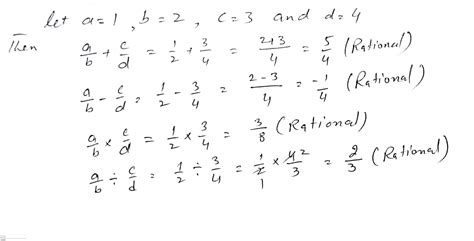 let a=1, b=2, c=3 and d=4
Then
a/b + c/d = 1/2 + 3/4 = 2+3/4 = 5/4 (Rational)
a/b - c/d = 1/2 - 3/4 = 2-3/4 = -1/4 (Rational)
a/b × c/d = 1/2 × 3/4 = 3/8 (Rational)
a/b ÷ c/d = 1/2 ÷ 3/4 = 1/2 1 × 4 2/3 = 2/3 (Rational)